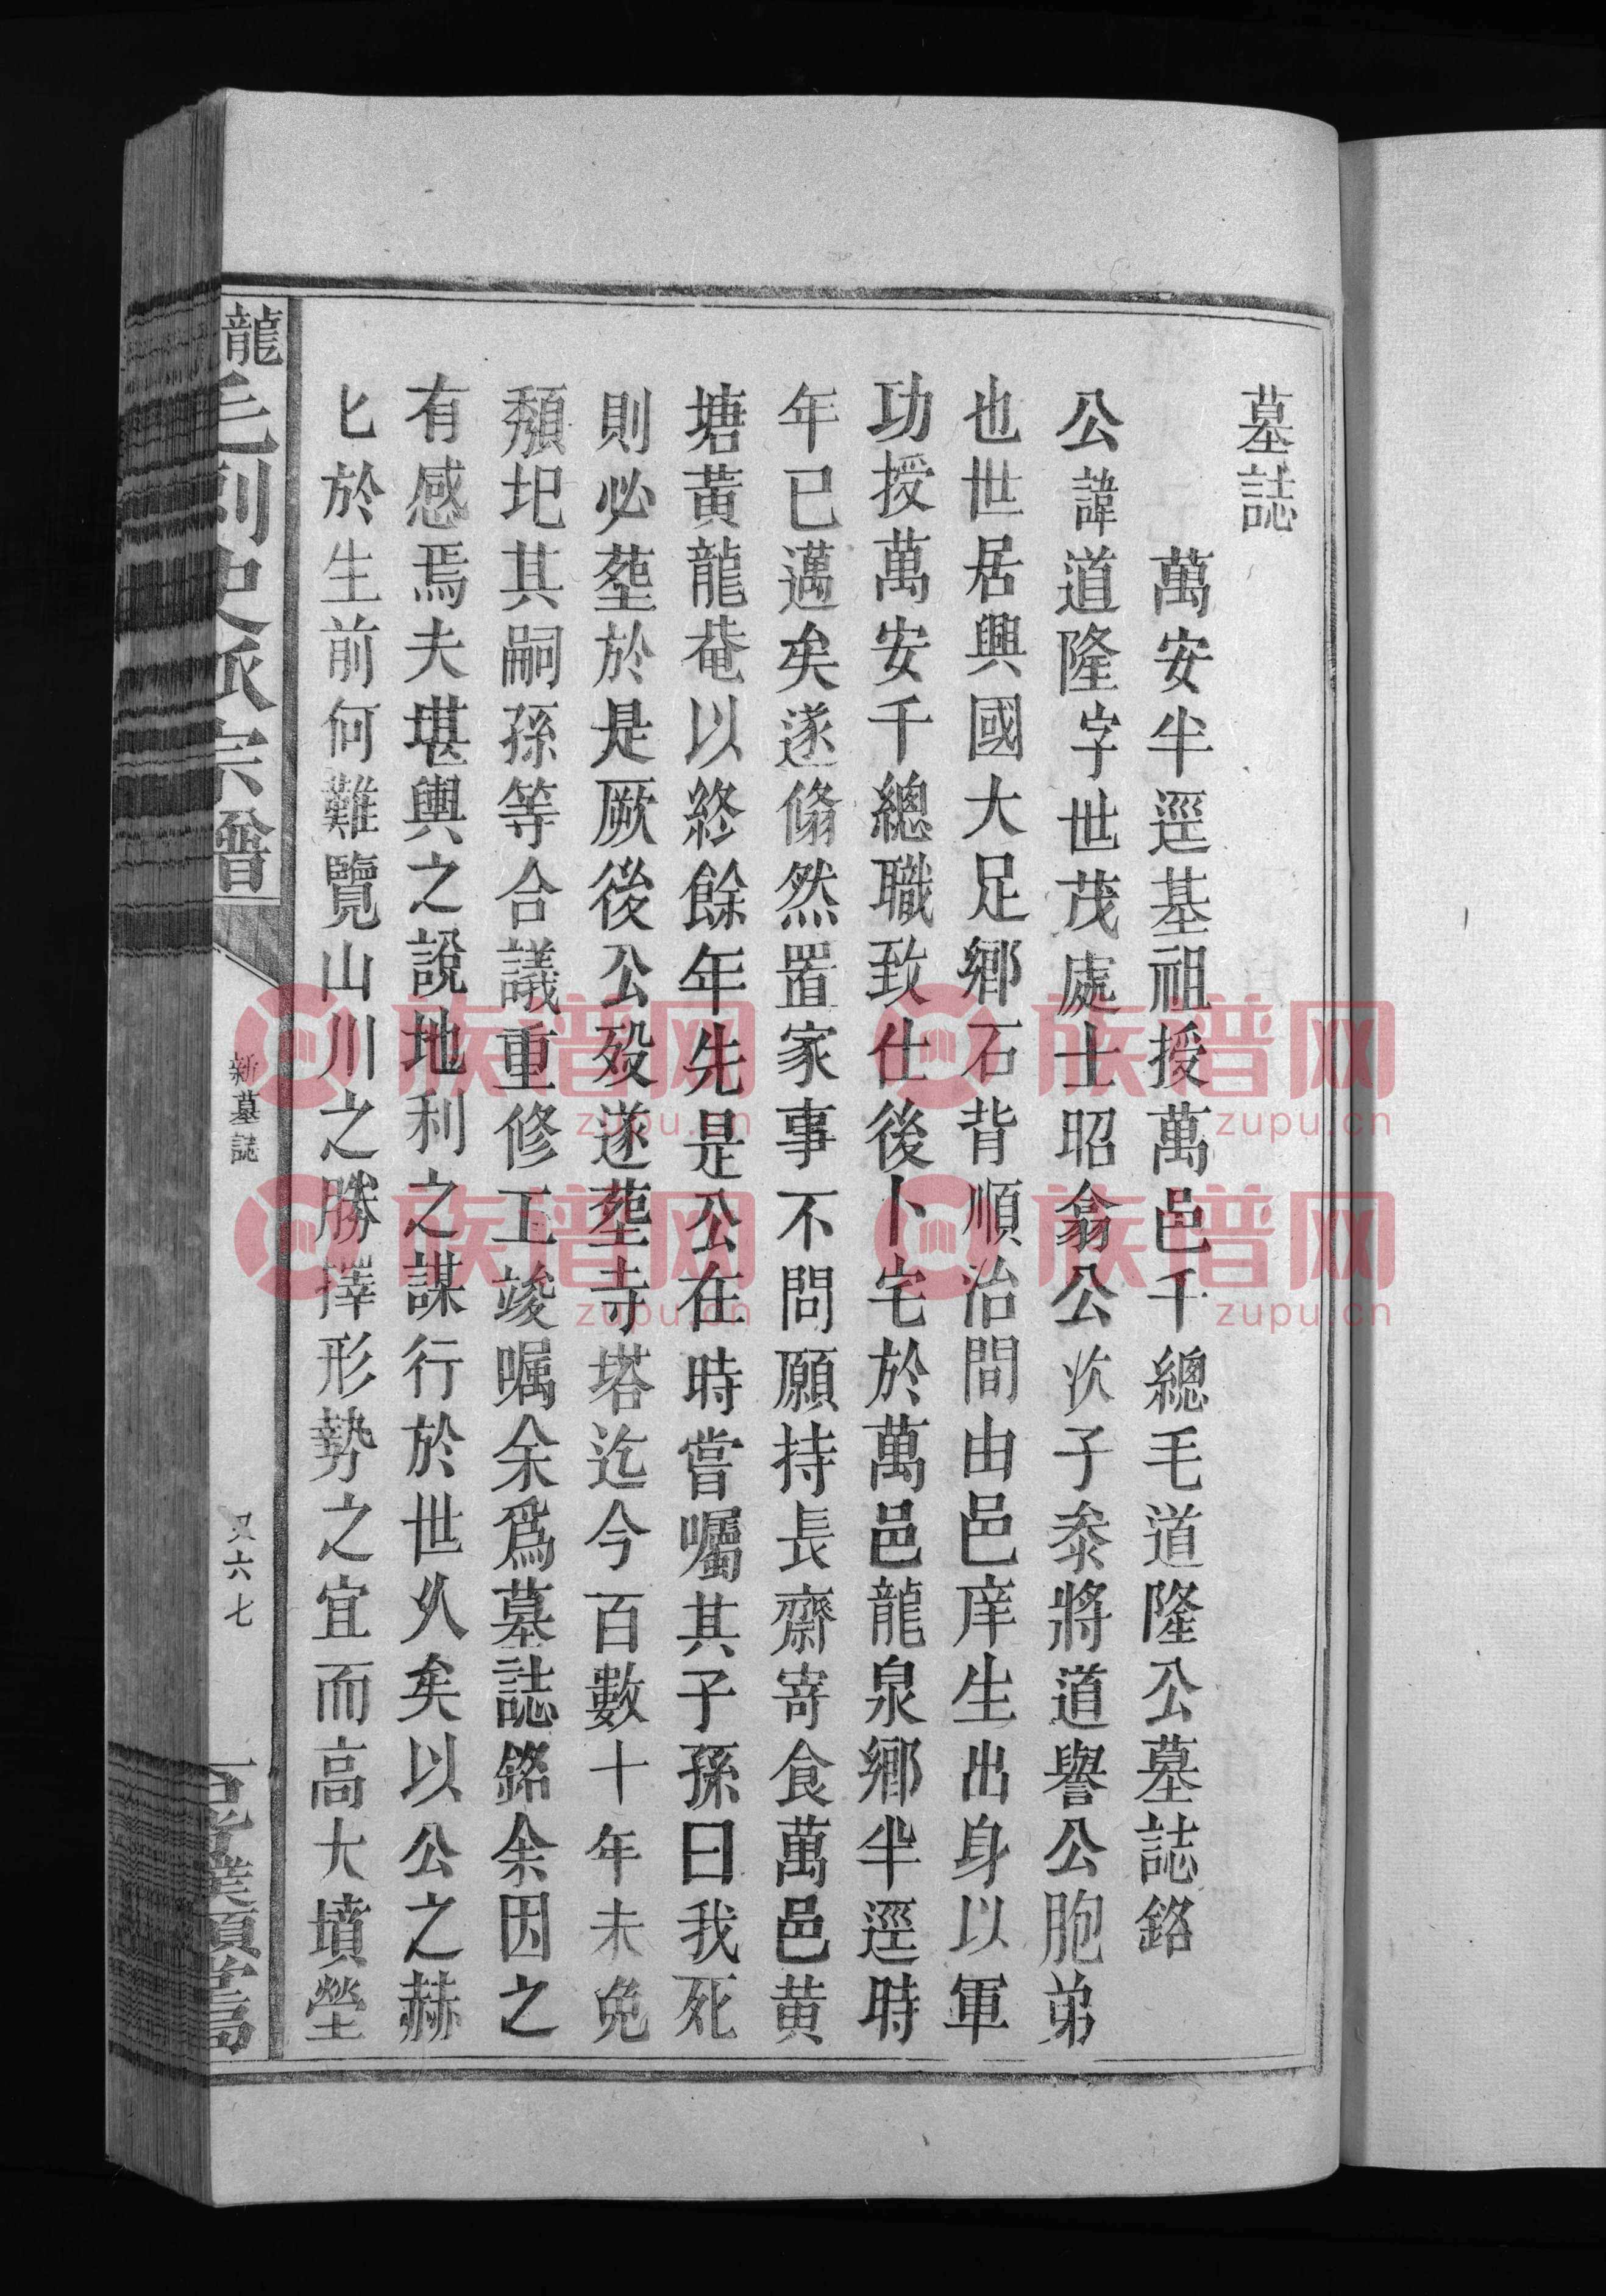 墓誌
萬安半逕基祖授萬邑千總毛道隆公墓誌銘
公諱道隆字世茂處士昭翕公次子叅將道譽公胞弟
也世居興國大足鄉石背順治間由邑庠生出身以軍
功授萬安千總職致仕後卜宅於萬邑龍泉鄉半逕時
年已邁矣遂翛然置家事不問願持長齋寄食萬邑黃
塘黃龍菴以終餘年先是公在時嘗囑其子孫曰我死
則必塟於是厥後公歿遂塟寺塔迄今百數十年未免
頹圯其嗣孫等合議重修工竣嘱余爲墓誌銘余因之
有感焉夫堪輿之說地利之謀行於世久矣以公之赫
匕於生前何難覽山川之勝擇形勢之宜而高大墳塋
龍
新墓誌
又六七
族譜网
zupu.cn
族譜网
zupu.cn
族譜网
zupu.cn
族譜网
zupu.cn